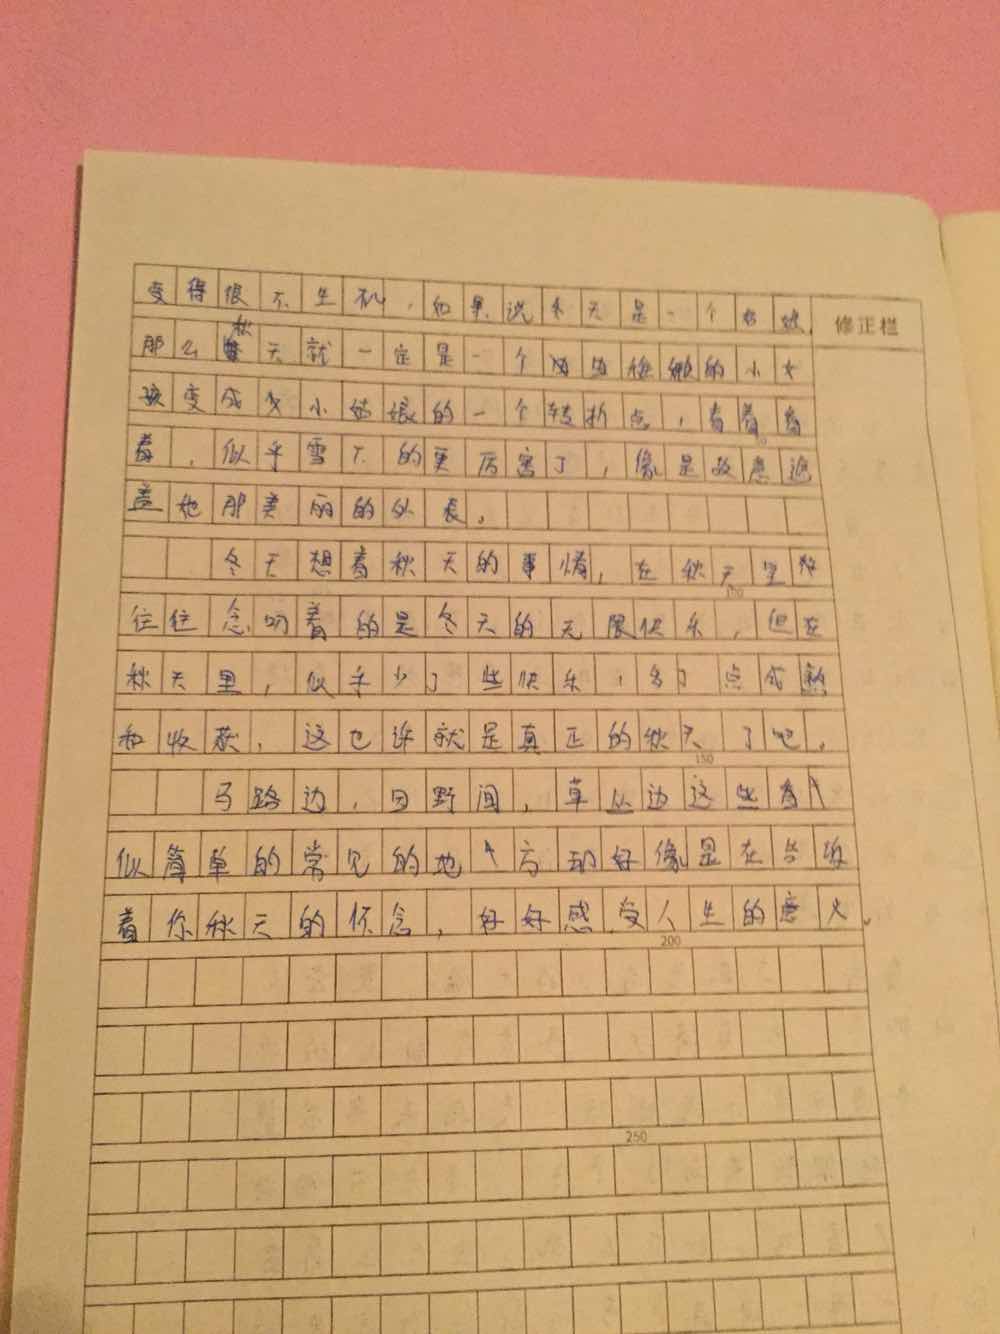 变得很不生机，如果说冬天是一个姑娘，修正栏
那么秋天就一定是一个的小女
孩变成大小姑娘的一个转折点，看着看
着，似乎雪下的更厉害了，像是故意遮
盖她那美丽的外表。
冬天想着秋天的事情，在秋天里
100
往往念叨着的是冬天的无限快乐，但在
秋天里，似乎少了些快乐，多了点成熟
和收获，这也许就是真正的秋天了吧。
150
马路边，田野间，草丛边这些看
似简单的常见的地方却好像是在告诉
着你秋天的怀念，好好感受人生的意义。
200
250